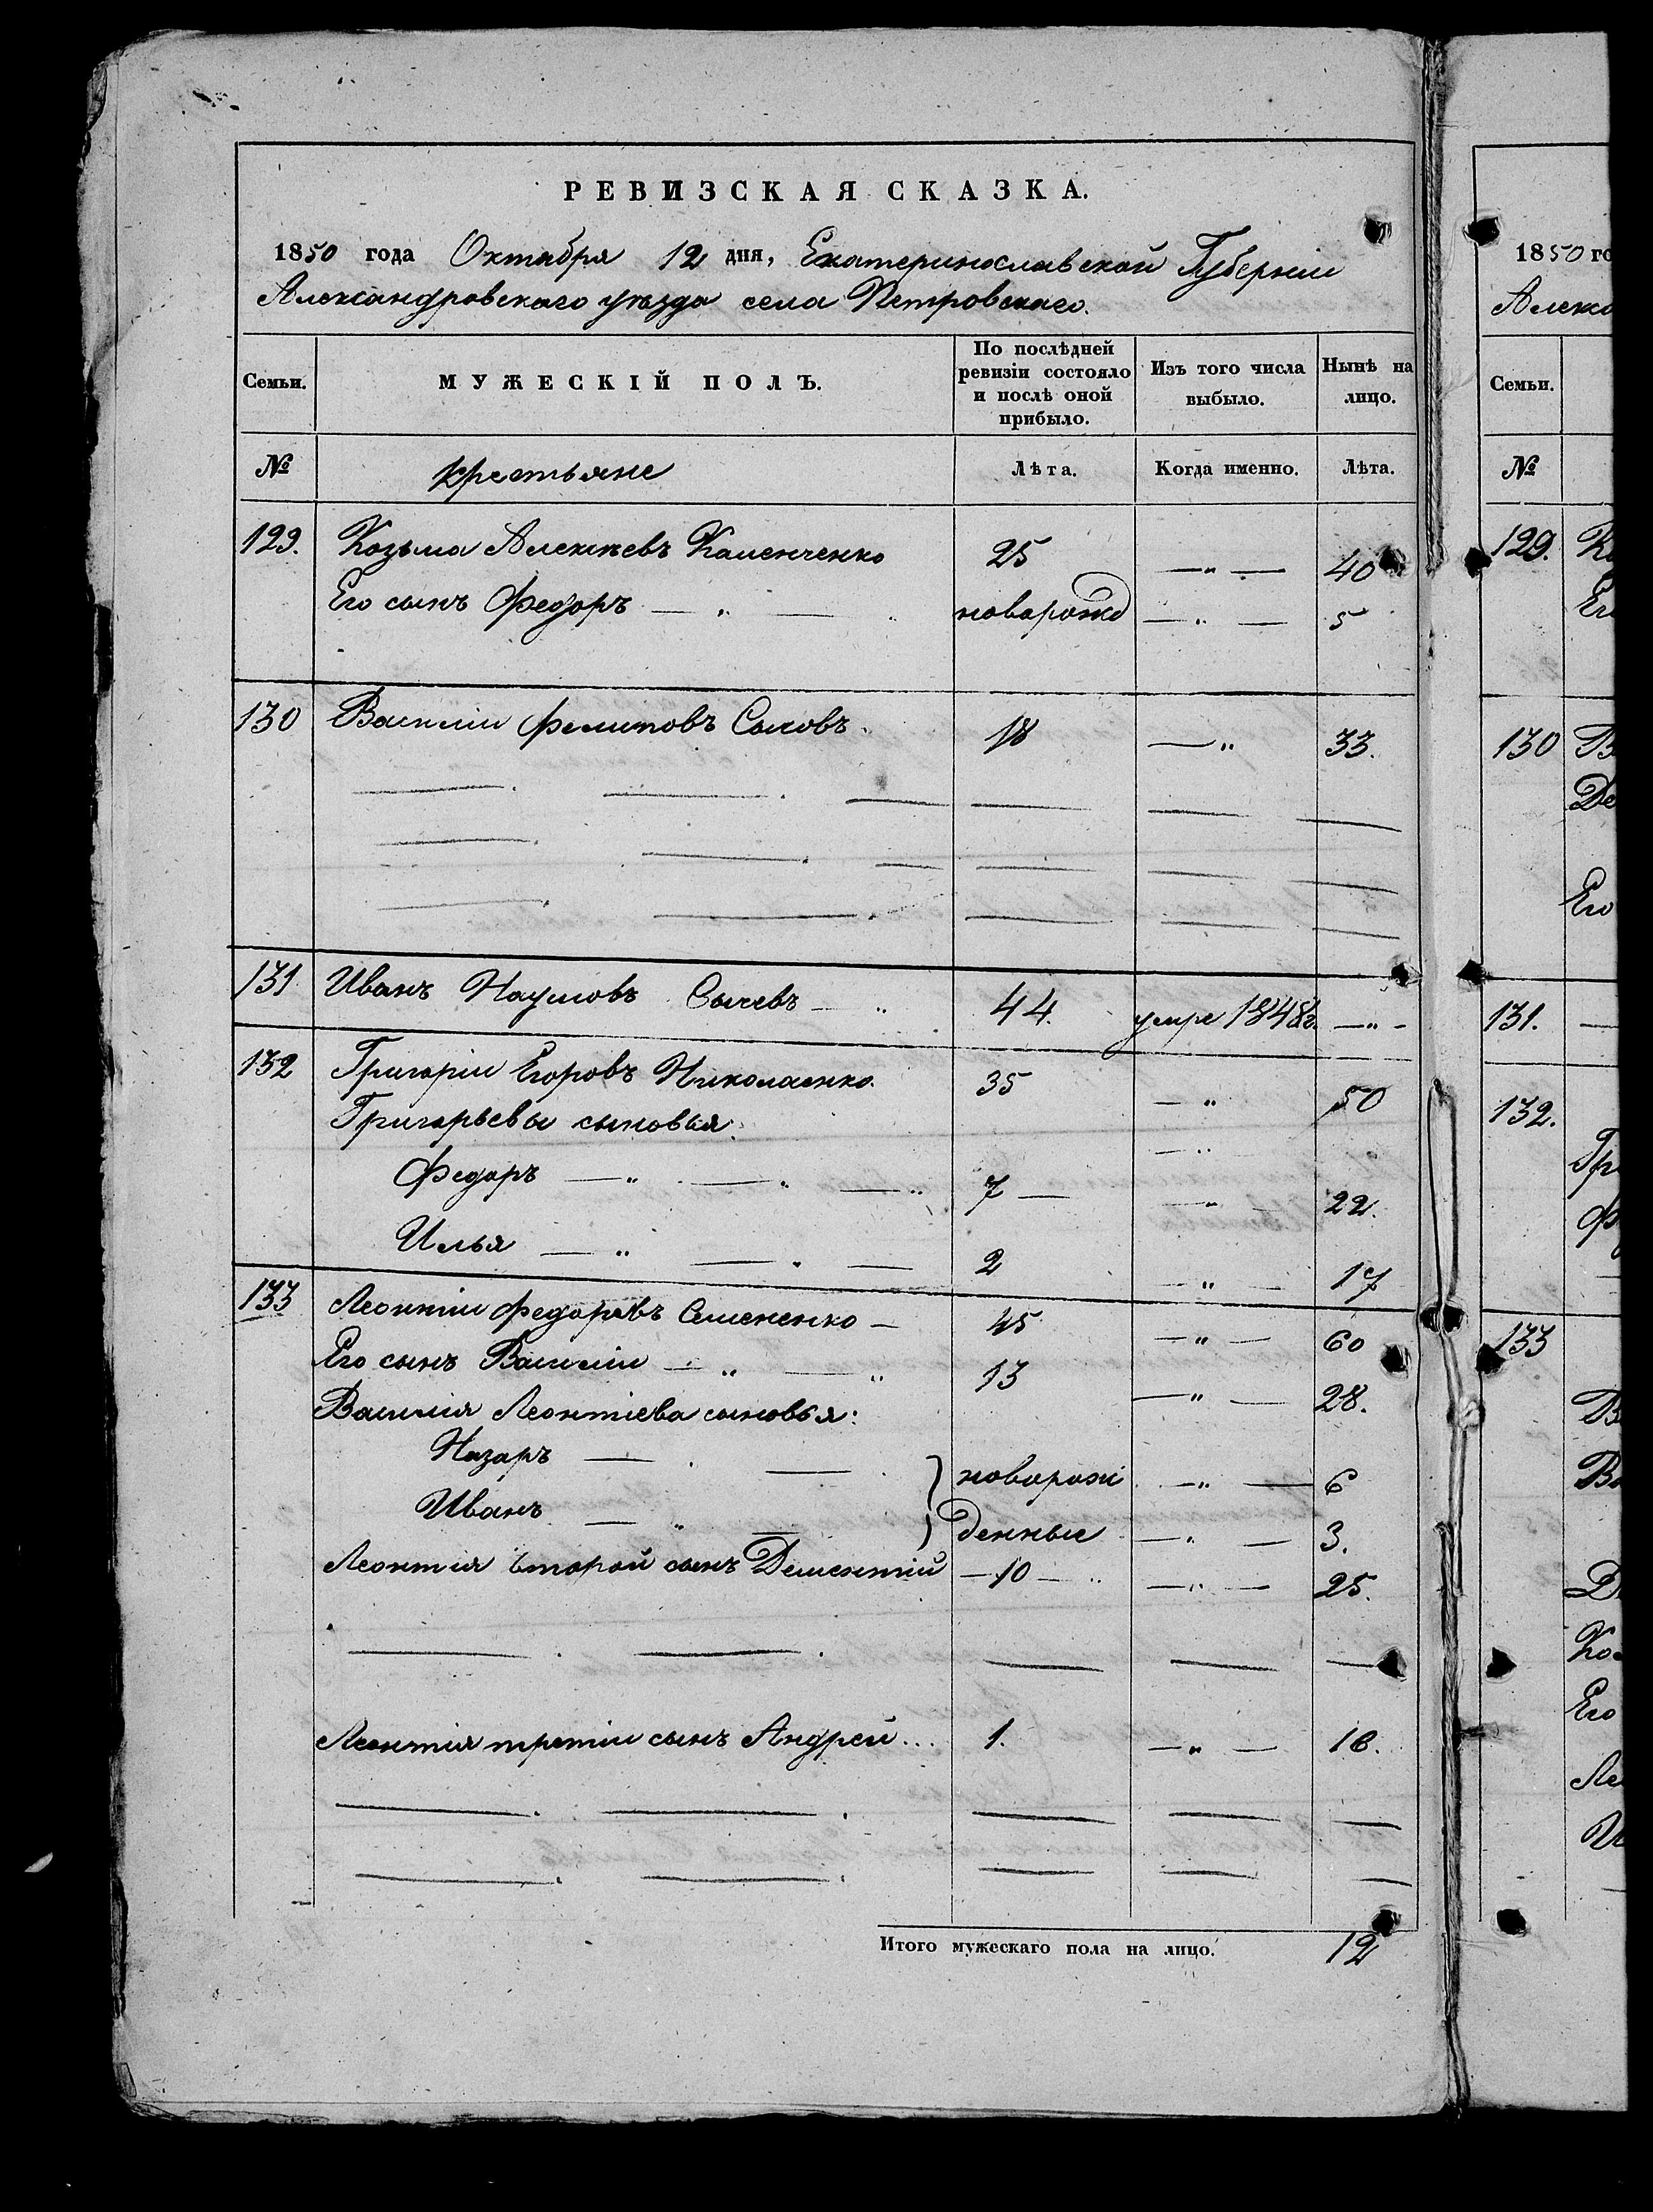 РЕВИЗСКАЯ СКАЗКА.
1850 года Октября 12 дня, Екатеринославской Губернии
Александровскаго уѣзда села Петровскаго.
Семьи. МУЖЕСКІЙ ПОЛЪ. По послѣдней ревизіи состояло и послѣ оной прибыло. Изъ того числа выбыло. Нынѣ на лицо.
№ крестьяне Лѣта. Когда именно. Лѣта.
129. Козьма Алексѣевъ 25 —„— 40
Его сынъ Федоръ —„— новорожд —„— 5
130 Василіи Филиповъ 18 —„ 33.
131 Иванъ Наумовъ Сычевъ —„ 44. умре 1848г. —„-
132 Григоріи Егоровъ Николаенко. 35 —„ 50
Григорьевы сыновья.
Федоръ —„ —„ —„ 7 — 22.
Илья —„ 2 —„— 17
133 Леонтіи Федоровъ Семененко — 45 —„— 60
Его сынъ Василіи —„ —„ 13 —„— 28.
Василия Леонтіева сыновья:
Назаръ — новорож —„— 6
Иванъ —„— денные —„— 3.
Леонтия второй сынъ Дементий —10—„ —„— 25.
Леонтія третіи сынъ Андрей... 1. —„— 16.
Итого мужескаго пола на лицо. 12
1850 го
Алекс
Семьи.
№
129.
Ег
130 В
Де
Его
131. —
132.
Гр
Ф
133
В
Ва
Д
Ко
Его
Ле
И